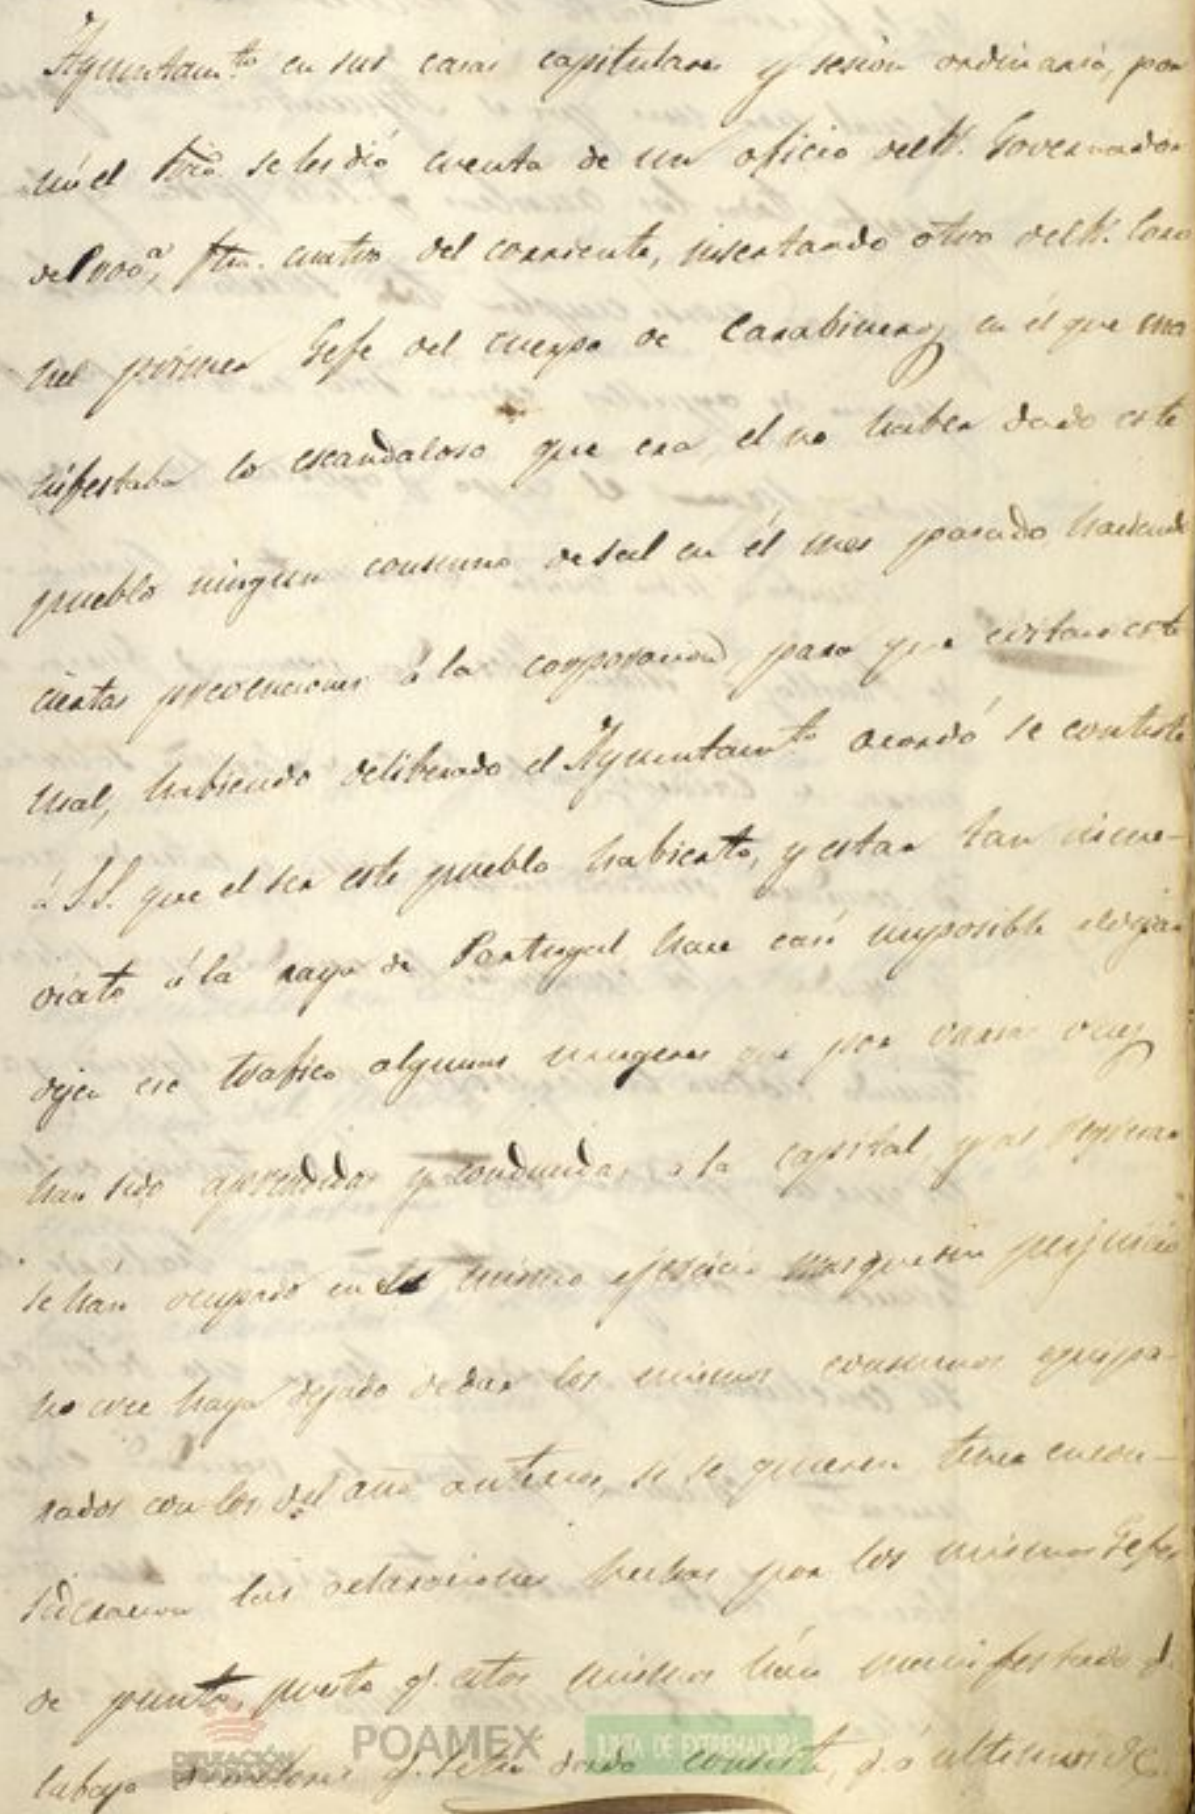 Ayuntam.to en sus casas capitulares y sesion ordinaria, por
mi el Srio. se les dió cuenta de un oficio del S. Governador
del cuatro del corriente, insertando otro del S. Coro
nel primer Gefe del cuerpo de Carabineros en él que ma
nifestaba lo escandaloso que era, el no haber dado este
pueblo ningun consumo de sal en él mes pasado haciendo
ciertas prevenciones á la corporacion, para que evitara este
mal, habiendo deliberado el Ayuntam.to acordó se conteste
á S.S. que el ser este pueblo habierto, y estar tan inme-
diato á la raya de Portugal hace casi imposible
dejen ese trafico algunas mugeres que por varias veces
han sido aprendidas y conducidas a la capital, y al
se hán ocupado en el mismo ejercicio mas que sin perjuicio
no cree haya dejado de dar los mismos consumos equipa-
rados con los del año anterior, si se quieren tener en con-
sideracion las relaciones hechas por los mismos Gefes
de punto, puesto q. estos mismos hán manifestado
q. se há dado q. á ultimos de
DIPUTACIÓN
POAMEX
JUNTA DE EXTREMADURA